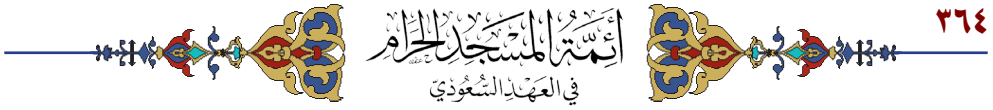 ٣٦٤
أَئِمَّةُ المَسْجِدِ الحَرَامِ
فِي العَهْدِ السُّعُودِيِّ